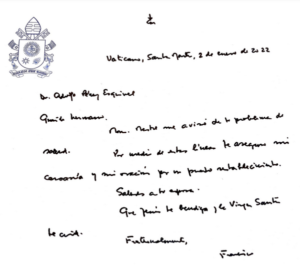 Vaticano, Santa Marta, 2 de enero de 2022
Dr. Adolfo Pérez Esquivel
Querido hermano:
me avisó de tu problema de
salud. Por medio de estas líneas te aseguro mi
cercanía y mi oración por un pronto restablecimiento.
Saludos a tu esposa.
Que Jesús te bendiga y la Virgen Santa
te cuide.
Fraternalmente,